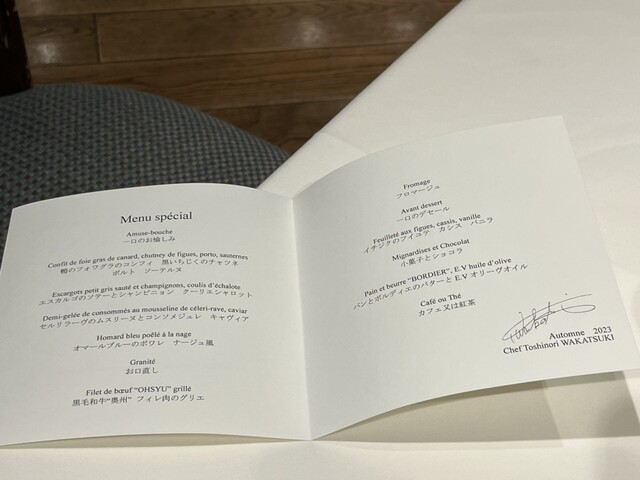 Menu spécial
Amuse-bouche
一口のお愉しみ
Confit de foie gras de canard, chutney de figues, porto, sauternes
鴨のフォワグラのコンフィ　黒いちじくのチャツネ
ポルト　ソーテルヌ
Escargots petit gris sauté et champignons, coulis d'échalote
エスカルゴのソテーとシャンピニョン　クーリエシャロット
Demi-gelée de consommés au mousseline de céleri-rave, caviar
セルリラーヴのムスリーヌとコンソメジュレ　キャヴィア
Homard bleu poêlé à la nage
オマールブルーのポワレ　ナージュ風
Granité
お口直し
Filet de bœuf "OHSYU" grillé
黒毛和牛"奥州" フィレ肉のグリエ
Fromage
フロマージュ
Avant dessert
一口のデセール
Feuilleté aux figues, cassis, vanille
イチジクのフイユテ　カシス　バニラ
Mignardises et Chocolat
小菓子とショコラ
Pain et beurre "BORDIER", E.V huile d'olive
パンとボルディエのバターと E.V オリーヴオイル
Café ou Thé
カフェ又は紅茶
Automne 2023
Chef Toshinori WAKATSUKI